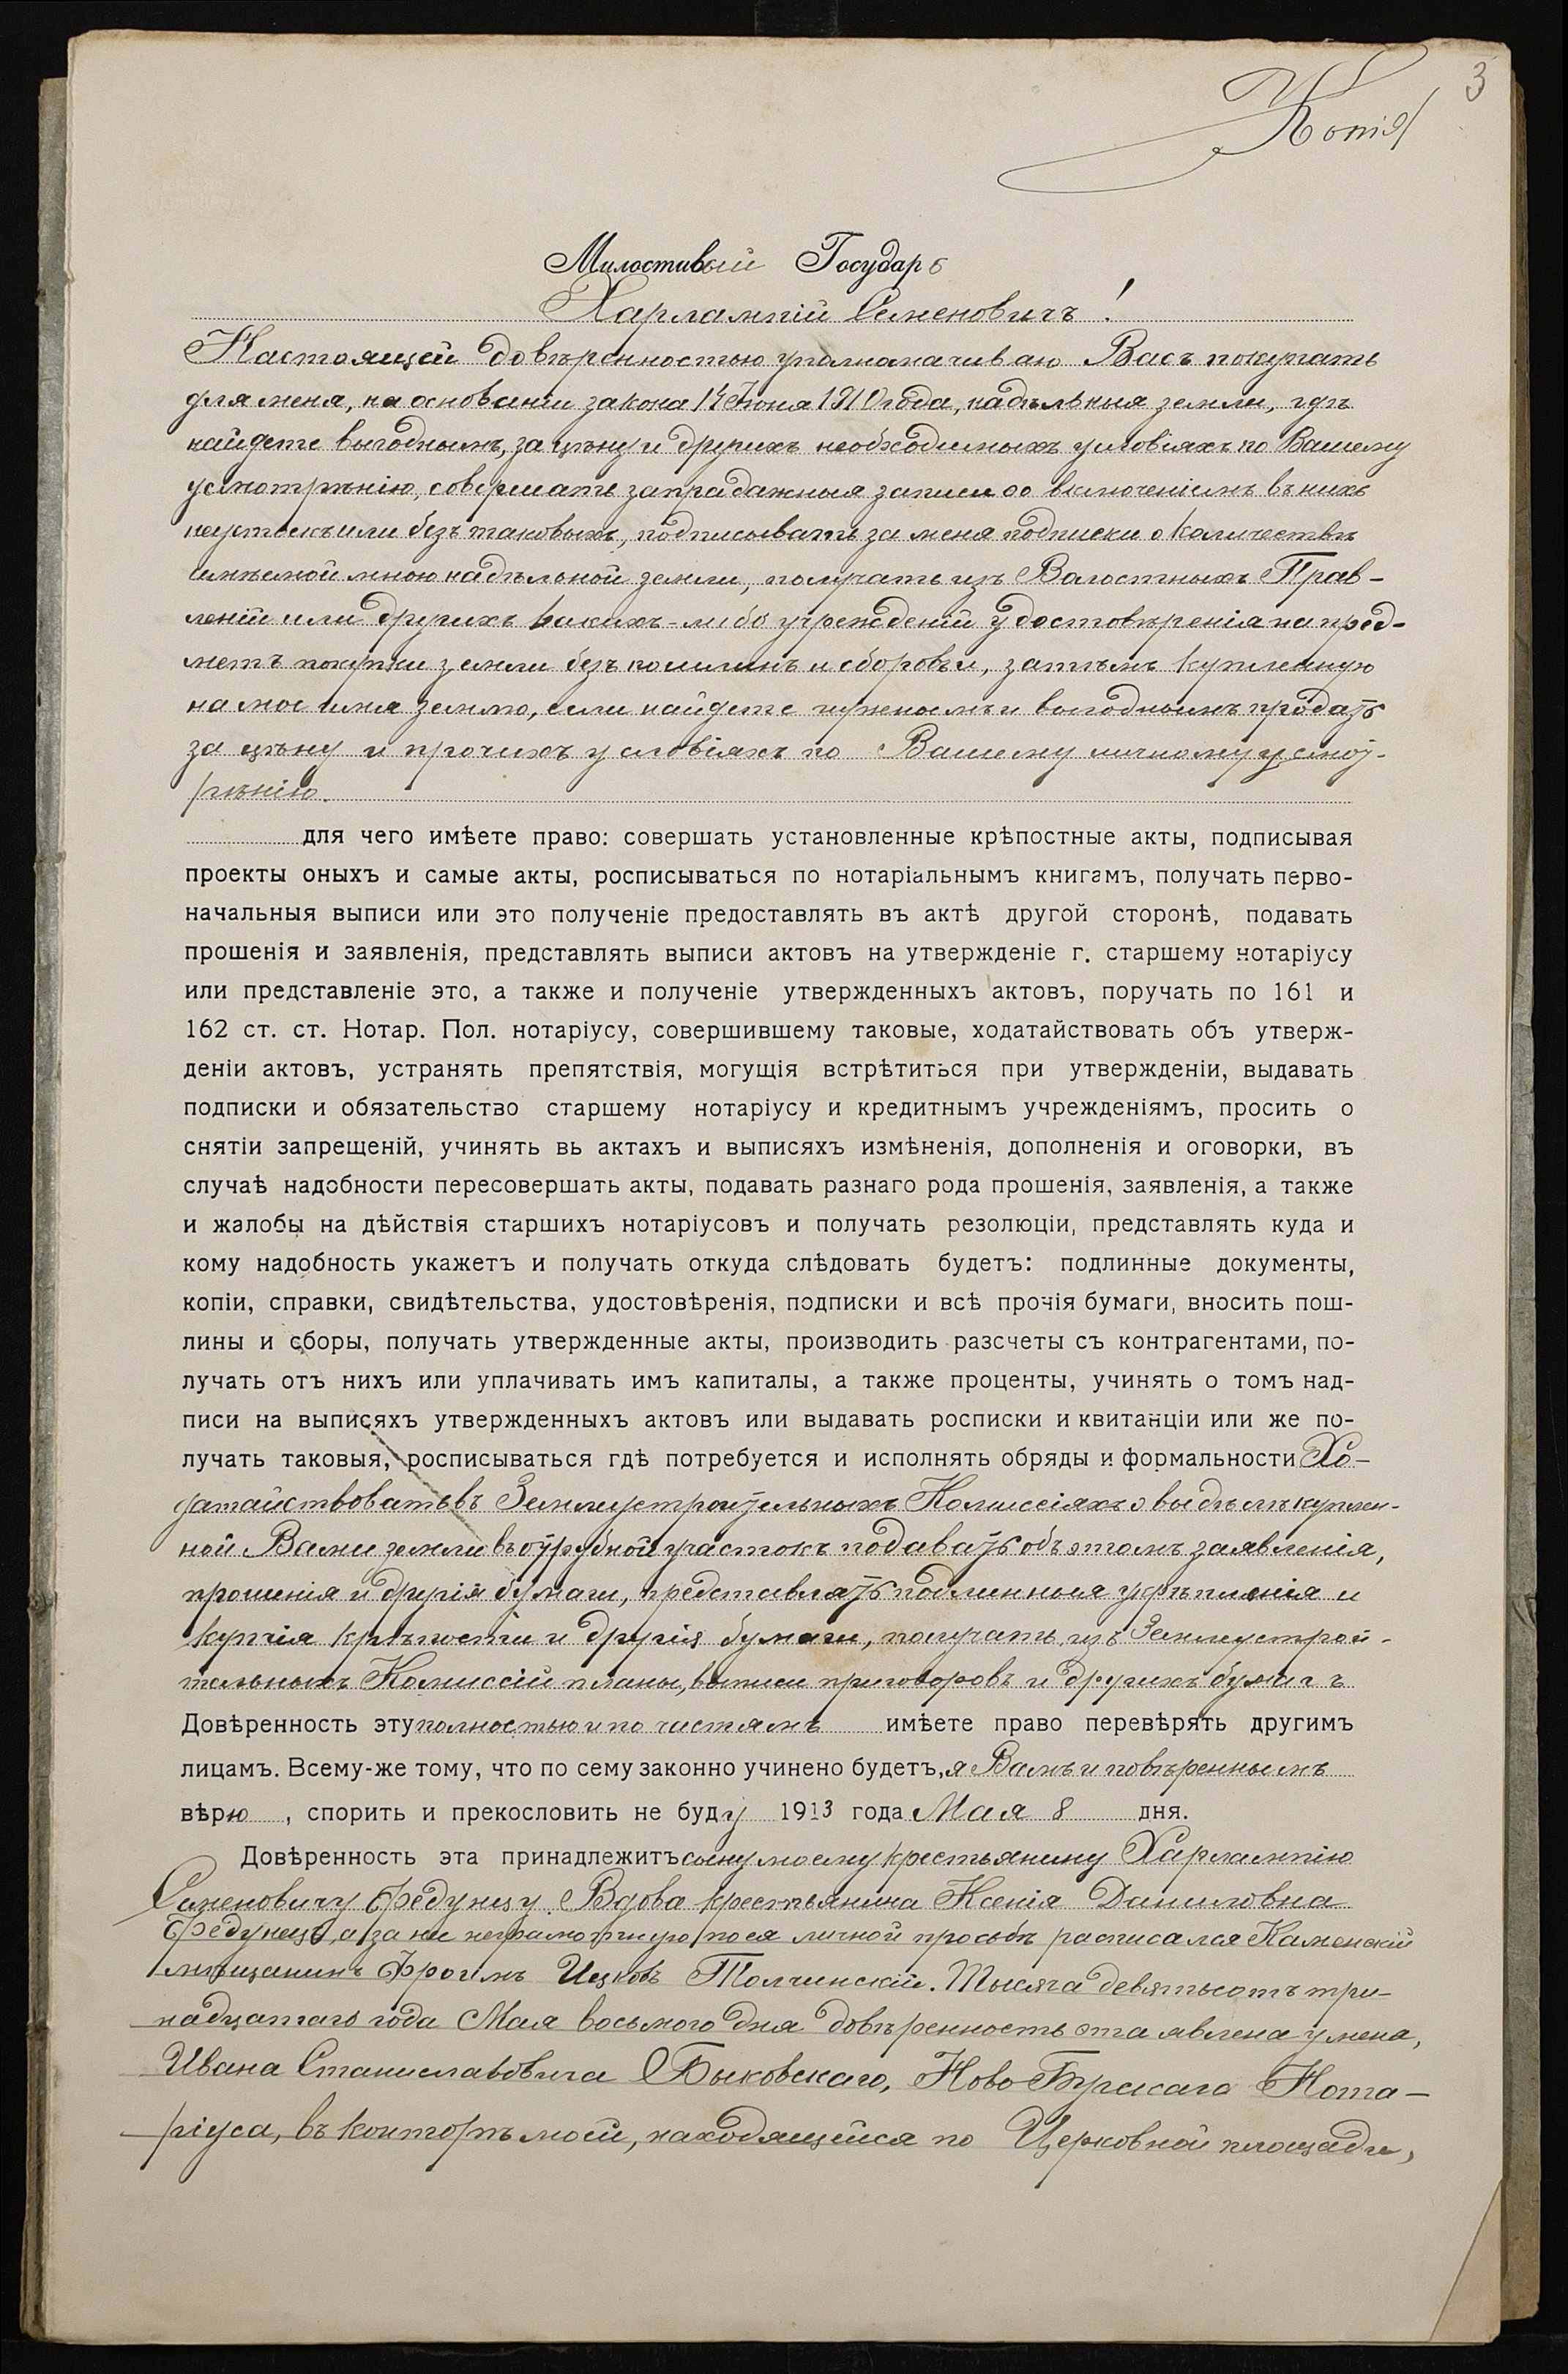 3
Копія
Милостивый Государь
Харлампій Семеновичъ!
Настоящей довѣренностью уполномачиваю Васъ покупать
для меня, на основаніи закона 14 Іюня 1910 года, надѣльныя земли, гдѣ
найдете выгоднымъ, за цѣну и другихъ необходимыхъ условіяхъ по Вашему
усмотрѣнію, совершать запродажныя записи со включеніемъ въ нихъ
неустоекъ или безъ таковыхъ, подписывать за меня подписки о количествѣ
имѣемой мною надѣльной земли, получать изъ Волостныхъ Прав-
леній или другихъ какихъ-либо учрежденій удостовѣренія на пред-
метъ покупки земли безъ пошлинъ и сборовъ и, затѣмъ купленную
на мое имя землю, если найдете нужнымъ и выгоднымъ продать
за цѣну и прочихъ условіяхъ по Вашему личному усмот-
рѣнію.
для чего имѣете право: совершать установленные крѣпостные акты, подписывая
проекты оныхъ и самые акты, росписываться по нотаріальнымъ книгамъ, получать перво-
начальныя выписи или это полученіе предоставлять въ актѣ другой сторонѣ, подавать
прошенія и заявленія, представлять выписи актовъ на утвержденіе г. старшему нотаріусу
или представленіе это, а также и полученіе утвержденныхъ актовъ, поручать по 161 и
162 ст. ст. Нотар. Пол. нотаріусу, совершившему таковые, ходатайствовать объ утверж-
деніи актовъ, устранять препятствія, могущія встрѣтиться при утвержденіи, выдавать
подписки и обязательство старшему нотаріусу и кредитнымъ учрежденіямъ, просить о
снятіи запрещеній, учинять вь актахъ и выписяхъ измѣненія, дополненія и оговорки, въ
случаѣ надобности пересовершать акты, подавать разнаго рода прошенія, заявленія, а также
и жалобы на дѣйствія старшихъ нотаріусовъ и получать резолюціи, представлять куда и
кому надобность укажетъ и получать откуда слѣдовать будетъ: подлинные документы,
копіи, справки, свидѣтельства, удостовѣренія, подписки и всѣ прочія бумаги, вносить пош-
лины и сборы, получать утвержденные акты, производить разсчеты съ контрагентами, по-
лучать отъ нихъ или уплачивать имъ капиталы, а также проценты, учинять о томъ над-
писи на выписяхъ утвержденныхъ актовъ или выдавать росписки и квитанціи или же по-
лучать таковыя, росписываться гдѣ потребуется и исполнять обряды и формальности Хо-
датайствовать въ Землеустроительныхъ Комиссіяхъ о выдѣлѣ куплен-
ной Вами земли въ отрубной участокъ подавать объ этомъ заявленія,
прошенія и другія бумаги, представлять подлинныя укрѣпленія и
купчія крѣпости и другія бумаги, получать изъ Землеустрои-
тельныхъ Комиссій планы, выписи приговоровъ и другихъ бумагъ
Довѣренность эту полностью и по частямъ имѣете право перевѣрять другимъ
лицамъ. Всему-же тому, что по сему законно учинено будетъ, я Вамъ и повѣреннымъ
вѣрю, спорить и прекословить не буду 1913 года Мая 8 дня.
Довѣренность эта принадлежитъ сыну моему крестьянину Харлампію
Семеновичу Федунцу. Вдова крестьянина Ксенія Даниловна
Федунецъ, а за нее неграмотную по ея личной просьбѣ расписался Каменскій
мѣщанинъ Фроимъ Ицковъ Толчинскій. Тысяча девятьсотъ три-
надцатаго года Мая восьмого дня довѣренность эта явлена у меня,
Ивана Станиславовича Быковскаго, Ново-Бугскаго Нота-
ріуса, въ конторѣ моей, находящейся по Церковной площади,